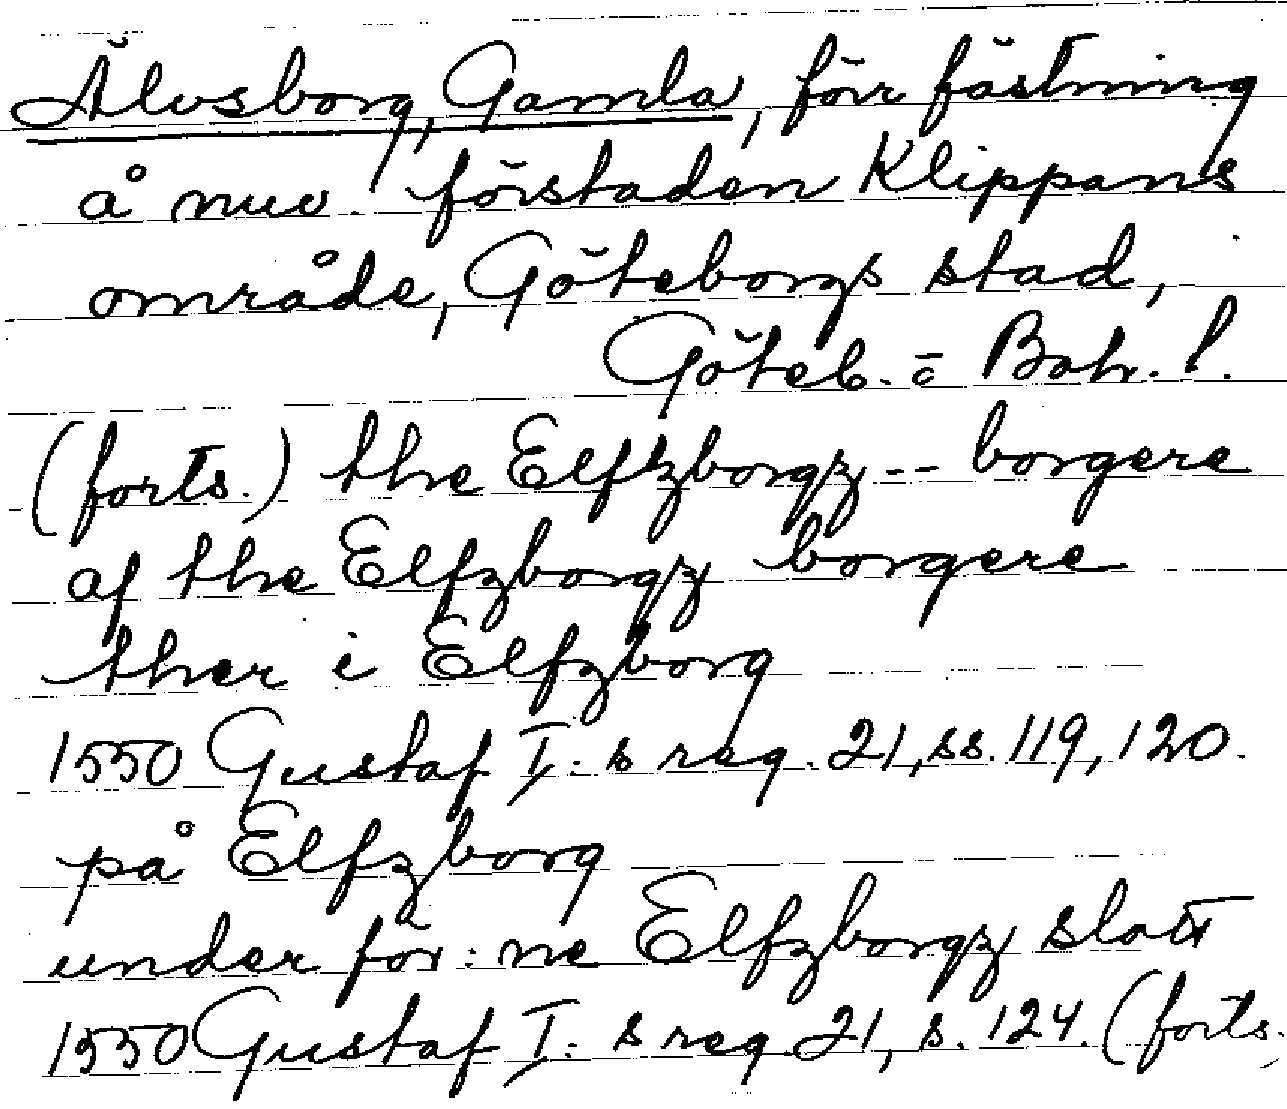 Älvsborg, Gamla, förr fästning
å nuv. förstaden Klippans
område, Göteborgs stad,
Göteb. o Boh. l.
(forts.) the Elfzborgz -- borgere
af the Elfzborgz borgere
ther i Elfzborg
1550 Gustaf I:s reg. 21, ss. 119, 120.
på Elfzborg
under för:ne Elfzborgz slott
1550 Gustaf I:s reg 21, s. 124. (forts.